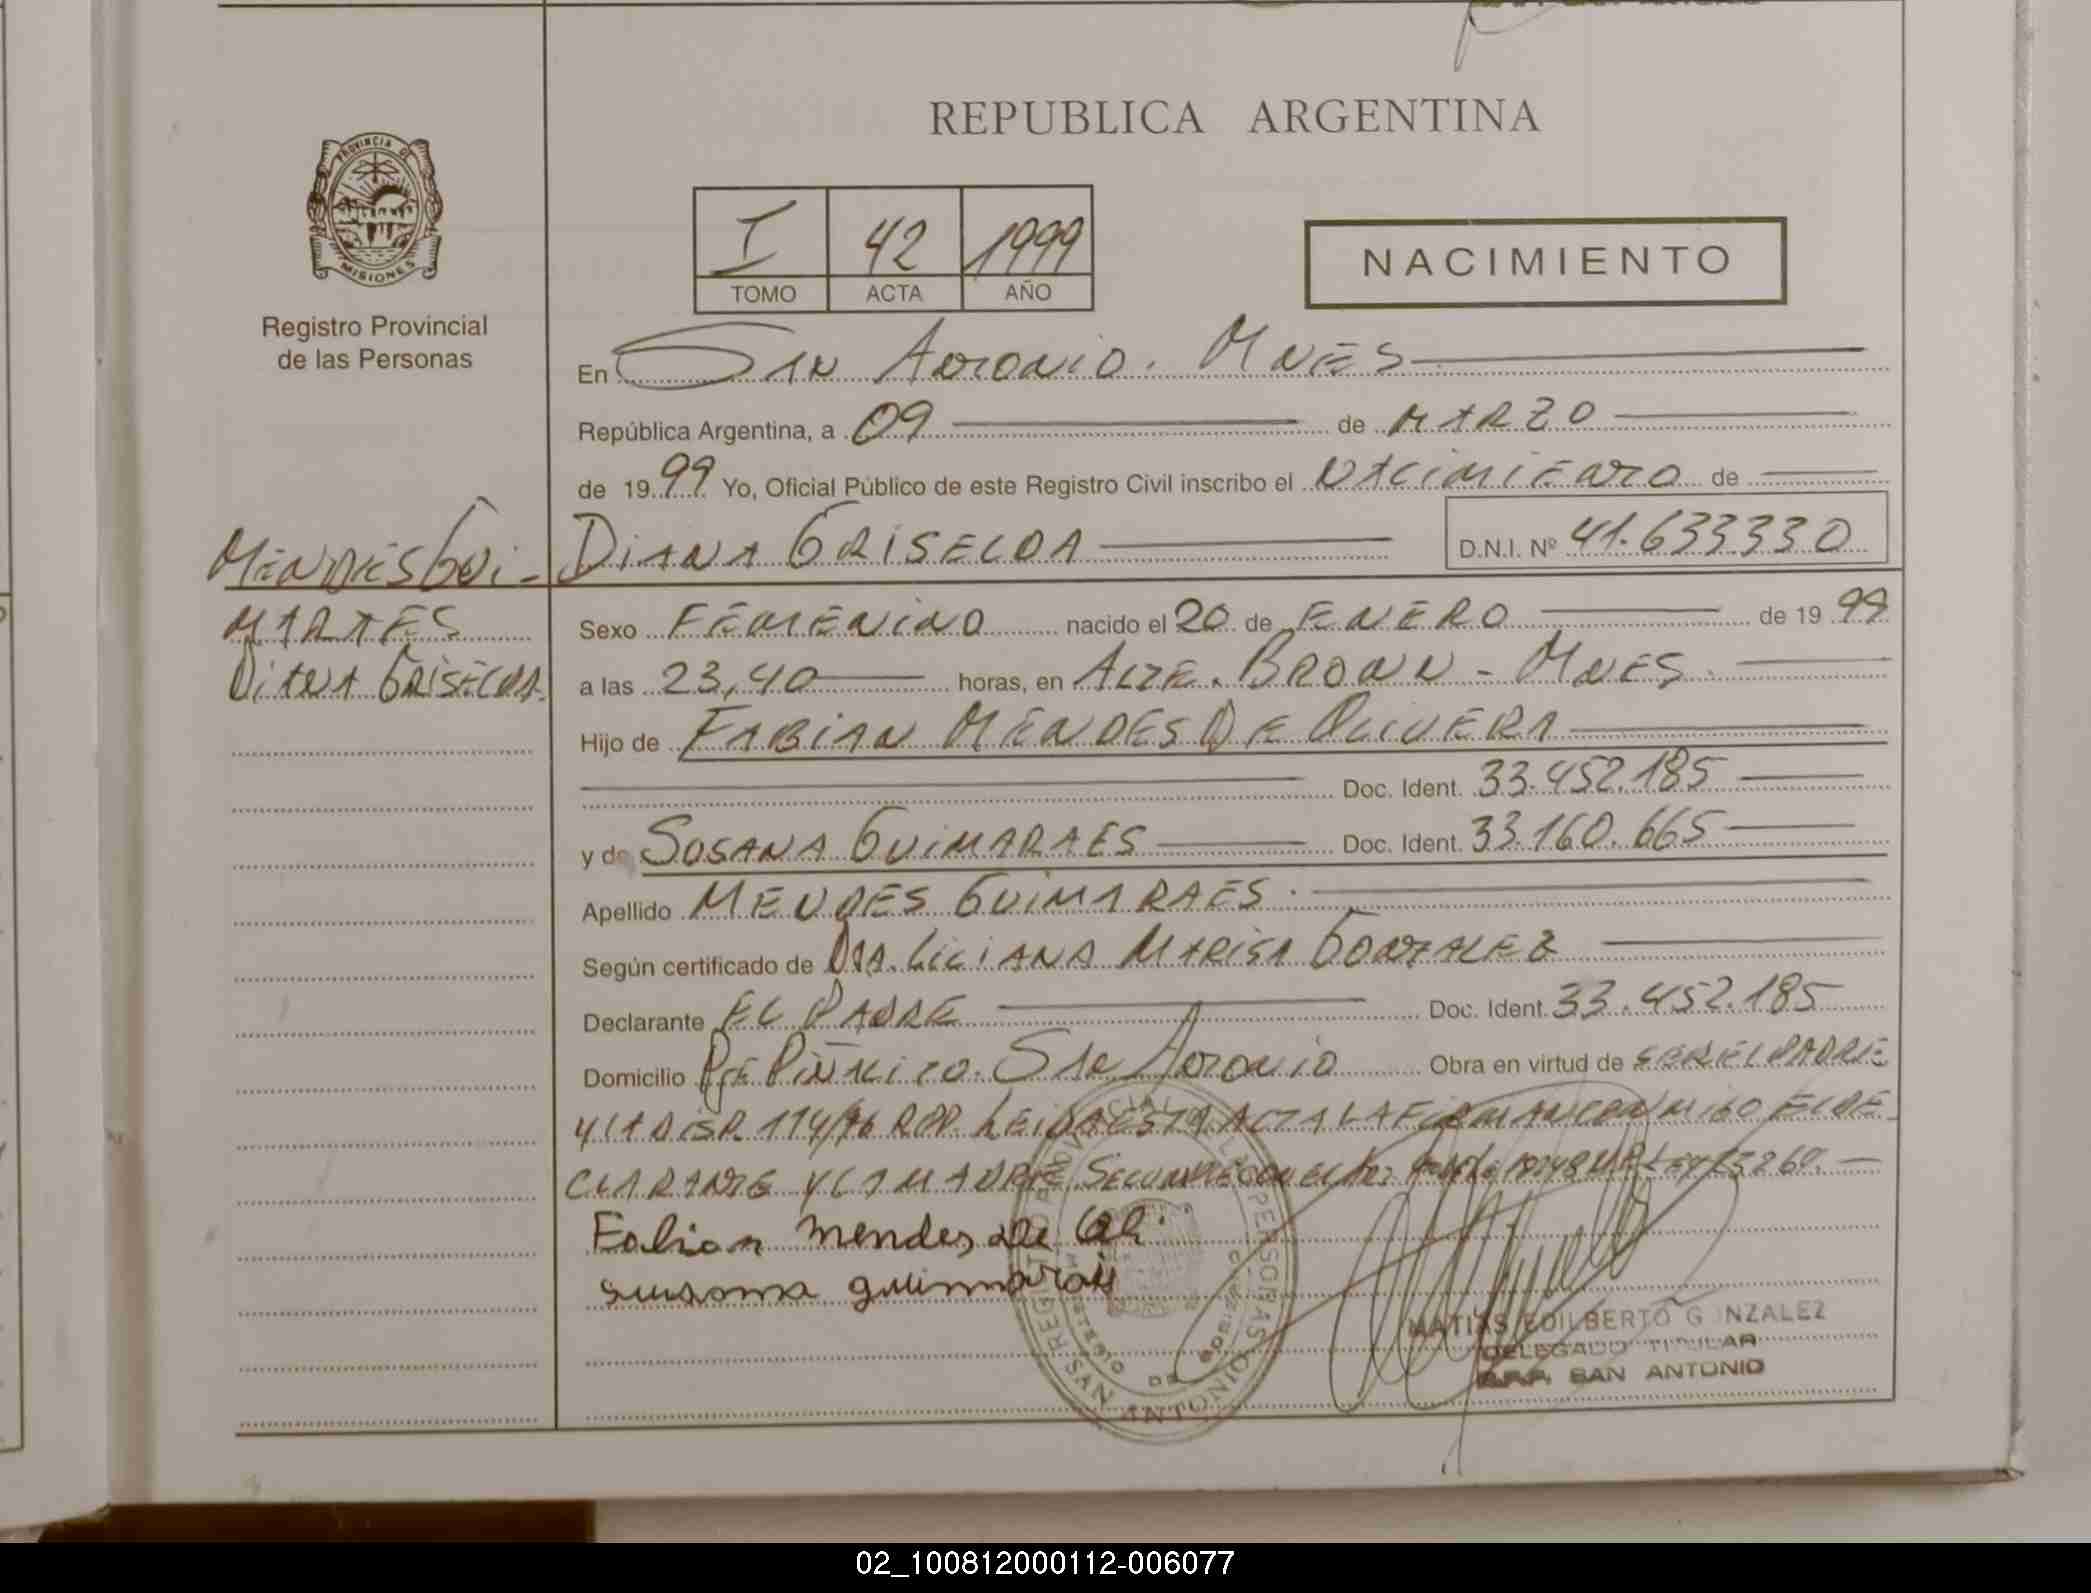 REPUBLICA ARGENTINA
PROVINCIA DE
MISIONES
Registro Provincial
de las Personas
I 42 1999
TOMO ACTA AÑO
NACIMIENTO
En SAN ANTONIO. MNES
República Argentina, a 09 de MARZO
de 1999 Yo, Oficial Público de este Registro Civil inscribo el NACIMIENTO de
DIANA GRISELDA D.N.I. Nº 41.633330
MENDES GUI-
MARAES
DIANA GRISELDA
Sexo FEMENINO nacido el 20 de ENERO de 1999
a las 23,40 horas, en ALTE. BROWN - MNES.
Hijo de FABIAN MENDES DE OLIVERA
Doc. Ident. 33.452.185
y de SUSANA GUIMARAES Doc. Ident. 33.160.665
Apellido MENDES GUIMARAES.
Según certificado de DRA. LILIANA MARISA GONZALEZ
Declarante EL PADRE Doc. Ident. 33.452.185
Domicilio PJE PIÑALITO. SAN ANTONIO Obra en virtud de SER EL PADRE
Y LA DISP. 114/96 RPP. LEIDA ESTA ACTA LA FIRMAN CONMIGO EL DE-
CLARANTE Y LA MADRE. SE CUMPLE CON EL LEY 23260.
Fabian mendes de Oli
susana guimaraes
SAN ANTONIO
MATIAS EDILBERTO GONZALEZ
DELEGADO TITULAR
R.P.P. SAN ANTONIO
02_100812000112-006077